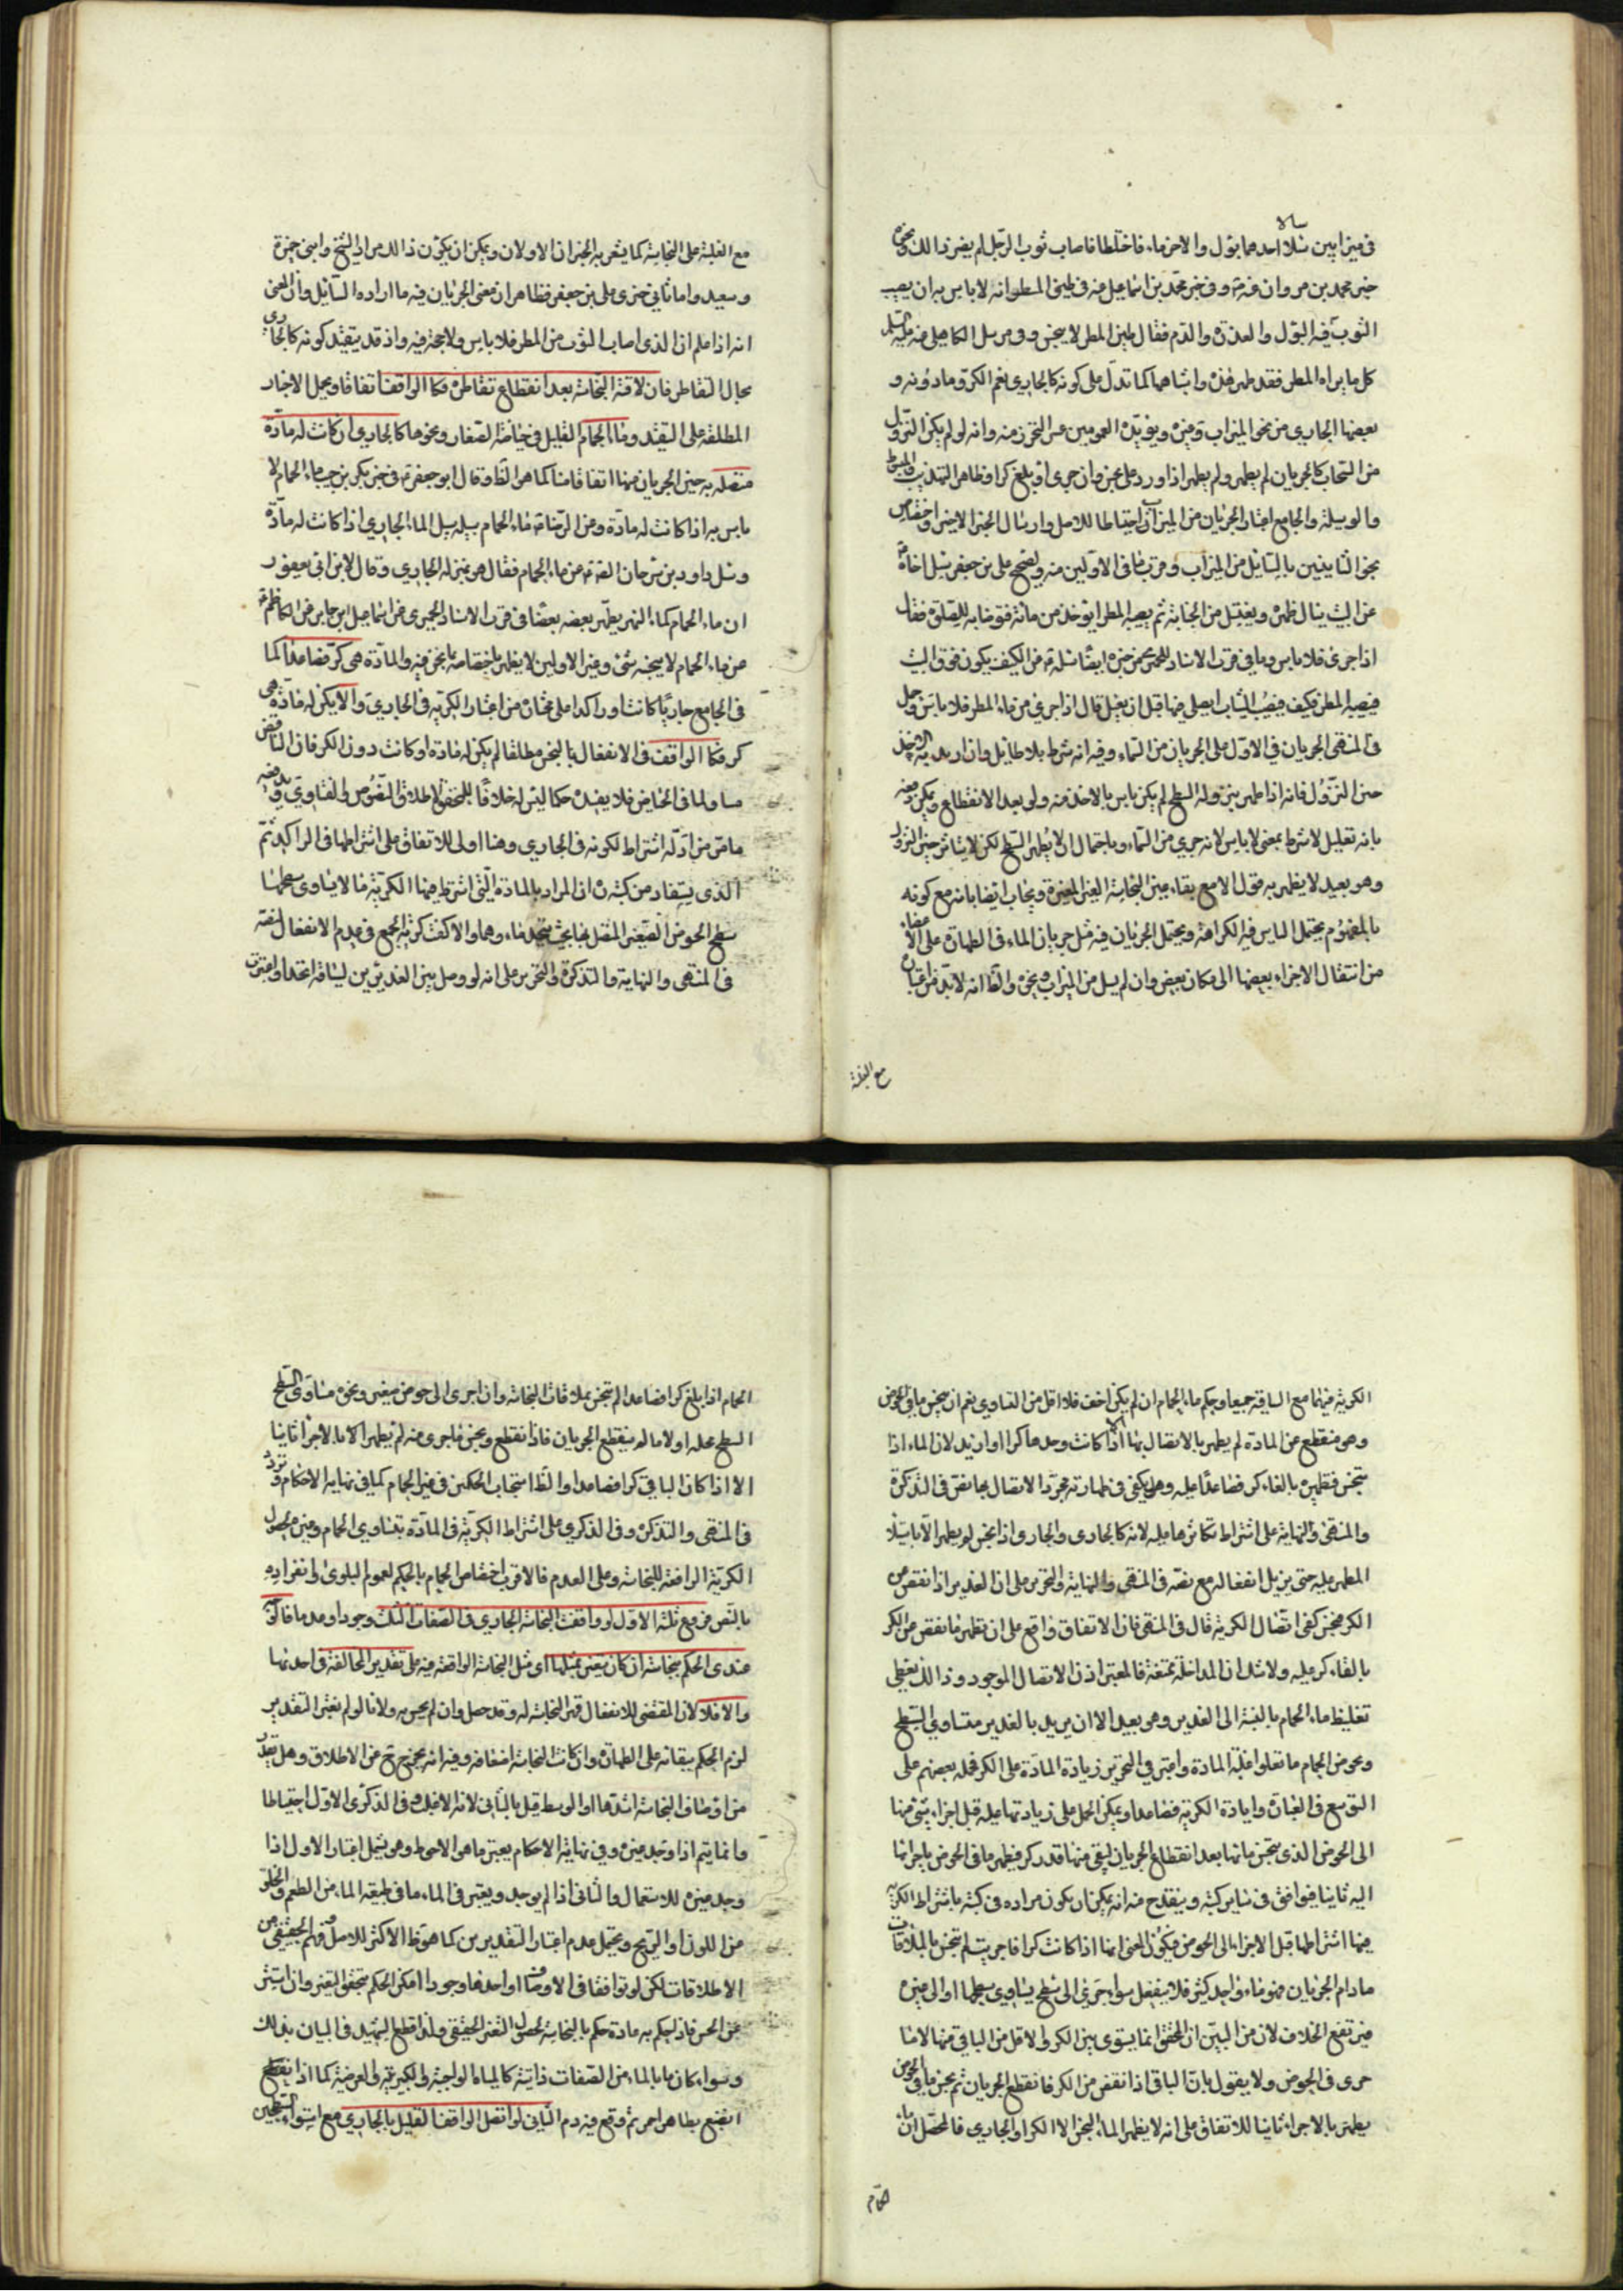 في ميزابين سالا احدهما بول والاخر ماء فاختلطا فاصاب ثوب الرجل لم يضر ذالك ونحوه
خبر محمد بن مروان عنه وفي خبر محمد بن اسماعيل عنه في طين المطر انه لا باس به ان يصيب
الثوب فيه البول والعذرة والدم فقال طين المطر لا ينجس وفي مرسل الكاهلي عنه عليه السلم
كل ما يراه المطر فقد طهر فهذه واشباهها كما تدل على كونه كالجاري نعم الكر وما دونه و
بعضها الجاري من نحو الميزاب وغيره ويؤيده العمومين عسر التحرز منه وانه لو لم يكن النزول
من السحاب كالجريان لم يطهر ولم يطهر اذا ورد على نجس وان جرى او بلغ كرا وظاهر التهذيب والمبسوط
والوسيلة والجامع اعتبار الجريان من الميزاب احتياطا للاصل وارسال الخبر الاخير واختصاص
نحو الثانيين بالسائل من الميزاب وقرب ما في الاولين منه وصحيح علي بن جعفر سئل اخاه
عن البيت يبال على ظهره ويغتسل من الجنابة ثم يصيبه المطر ايؤخذ من مائه فيتوضا به للصلوة فقال
اذا جرى فلا باس وما في قرب الاسناد للحميري من خبره ايضا سئله عن الكنيف يكون فوق البيت
فيصيبه المطر فيكف فيصيب الثياب ايصلي فيها قبل ان يغسل قال اذا جرى من ماء المطر فلا باس وحمل
في المنتهى الجريان في الاول على الجريان من السماء وفيه انه شرط بلا طائل وان اريد به الاخذ
حين النزول فانه اذا طهر بنزوله السطح لم يكن باس بالاخذ منه ولو بعد الانقطاع ويمكن دفعه
بانه تعليل لا شرط بمعنى لا باس لانه جرى من السماء وباحتمال ان لا يطهر السطح لكن لا يتاثر حين النزول
وهو بعيد لا يظهر به قول الا مع بقاء عين النجاسة الغير المغيرة ويجاب ايضا بانه مع كونه
بالمفهوم يحتمل الباس فيه الكراهة ويحتمل الجريان فيه مثل جريان الماء في الطهارة على الاعضاء
من انتقال الاجزاء بعضها الى مكان بعض وان لم يسل من الميزاب ونحوه والظ انه لا بد من اعتباره
مع الغلبة
مع الغلبة على النجاسة كما يشعر به الخبران الاولان ويمكن ان يكون ذالك مراد الشيخ وابني حمزة
وسعيد واما ثاني خبري علي بن جعفر فظاهر ان معنى الجريان فيه ما اراده السائل وان المعنى
انه اذا علم ان الذي اصاب الثوب من المطر فلا باس ولا حجة فيه واذ قد تقيد كونه كالجاري
بحال التقاطر فان لاقته النجاسة بعد انقطاع تقاطره فكالواقف اتفاقا ويحمل الاخبار
المطلقة على التقييد وماء الحمام القليل في حياضه الصغار ونحوها كالجاري ان كانت له مادة
متصلة به حين الجريان منها اتفاقا منا كما هو الظ وقال ابو جعفر في خبر بكر بن حبيب ماء الحمام لا
باس به اذا كانت له مادة وعن الرضا ماء الحمام سبيله سبيل الماء الجاري اذا كانت له مادة
وسئل داود بن سرحان الصادق عن ماء الحمام فقال هو بمنزلة الجاري وقال لابن ابي يعفور
ان ماء الحمام كماء النهر يطهر بعضه بعضا وفي قرب الاسناد للحميري عن اسماعيل ابن جابر عن الكاظم
عن ماء الحمام لا ينجسه شئ وغير الاولين لا يظهر اختصاصه بما نحن فيه والمادة هي كر فصاعدا كما
في الجامع جاريا كانت او راكدا على مختاره من اعتبار الكرية في الجاري والا يكن له مادة هي
كر فكالواقف في الانفعال بالنجس مطلقا لم يكن له مادة او كانت دون الكر فان الناقص
مساو لما في الحياض فلا يفيده حكما ليس له خلافا للمحقق لاطلاق النصوص والفتاوي ويدفعه
ما مر من ادلة اشتراط لكونه في الجاري وهنا اولى للاتفاق على اشتراطها في الراكد ثم
الذي يستفاد من كتبه ان المراد بالمادة التي اشترط فيها الكرية ما لا يساوى سطحها
سطح الحوض الصغير المتصل بها بحيث يتحد ماءوهما والا كفت كرية الجمع في عدم الانفعال لنصه
في المنتهى والنهاية والتذكرة والتحرير على انه لو وصل بين الغديرين بساقية اتحدا واعتبرت
الكرية فيهما مع الساقية جميعا وحكم ماء الحمام ان لم يكن اخف فلا اقل من التساوي نعم ان نجس ما في الحوض
وهو منقطع عن المادة لم يطهر بالاتصال بها الا اذا كانت وحدها كرا او ازيد لان الماء اذا
تنجس فتطهيره بالقاء كر فصاعدا عليه وهل يكفي في طهارته مجرد الاتصال بها نص في التذكرة
والمنتهى والنهاية على اشتراط تكاثرها عليه لانه كالجاري والجاري اذا نجس لم يطهر الا باستيلاء
المطهر عليه حتى يزيل انفعاله مع نصه في المنتهى والنهاية والتحرير على ان الغدير اذا نقص من
الكر فنجس كفى اتصال الكرية قال في المنتهى فان الاتفاق واقع على ان تطهير ما نقص من الكر
بالقاء كر عليه ولا شك ان المداخلة ممتنعة فالمعتبر اذن الاتصال الموجود وذالك يعطي
تغليظ ماء الحمام بالنسبة الى الغدير وهو بعيد الا ان يريد بالغدير متساوي السطح
وبحوض الحمام ما تعلوا عليه المادة واعتبر في التحرير زيادة المادة على الكر فحمله بعضهم على
التوسع في العبارة وارادة الكرية فصاعدا ويمكن الحمل على زيادتها عليه قبل اجراء شئ منها
الى الحوض الذي نجس ماؤها بعد انقطاع الجريان ليبقى منها قدر كر فيطهر ما في الحوض باجرائها
اليه ثانيا فيوافق في سائر كتبه وينقدح منه انه يمكن ان يكون مراده في كتبه باشتراط الكرية
فيها اشتراطها قبل الاجراء الى الحوض فيكون المعنى انها اذا كانت كرا فاجريت لم تنجس بالملاقات
ما دام الجريان فهو ماء واحد كثير فلا ينفعل سواء جرى الى سطح يساوي سطحها او الى غيره
فيرتفع الخلاف لان من البين ان المحقق انما يسوي بين الكر والاقل من الباقي منها لا مما
جرى في الحوض ولا يقول بان الباقي اذا نقص من الكر فانقطع الجريان ثم نجس ما في الحوض
يطهر بالاجراء ثانيا للاتفاق على انه لا يطهر الماء النجس الا الكر او الجاري فالمحصل ان ماء
الحمام
الحمام اذا بلغ كرا فصاعدا لم ينجس بملاقات النجاسة وان اجرى الى حوض صغير ونحوه متساوي السطح
السطح محله اولا ما لم ينقطع الجريان فاذا انقطع ونجس ما جرى منه لم يطهر الا بالاجراء ثانيا
الا اذا كان الباقي كرا فصاعدا والظ انسحاب الحكمين في غير الحمام كما في نهاية الاحكام وتردد
في المنتهى والتذكرة وفي الذكري وعلى اشتراط الكرية في المادة يتساوي الحمام وغيره لحصول
الكرية الرافعة للنجاسة وعلى العدم فالاقرب اختصاص الحمام بالحكم لعموم البلوى وانفراده
بالنص فروع ثلثة الاول لو وافقت النجاسة الجاري في الصفات الثلث وجودا وعدما فالوجه
عندي الحكم بنجاسته ان كان يتغير بمثلها اي مثل النجاسة الواقعة فيه على تقدير المخالفة في احديها
والا فلا لان المقتضى للانفعال قهر النجاسة له وقد حصل وان لم يحس به ولانا لو لم نعتبر التقدير
لزم الحكم ببقائه على الطهارة وان كانت النجاسة اضعافه وفيه انه يخرج ح عن الاطلاق وهل يقدر
من اوصاف النجاسة اشدها او الوسط قيل بالثاني لانه الاغلب وفي الذكرى الاول احتياطا
وانما يتم اذا وجد غيره وفي نهاية الاحكام يعتبر ما هو الاحوط وهو يشمل اعتبار الاول اذا
وجد غيره للاستعمال والثاني اذا لم يوجد ويعتبر في الماء ما في طبيعة الماء من الطعم والخلو
من اللون او الريح ويحتمل عدم اعتبار التقديرين كما هو ظ الاكثر للاصل وفهم الحقيقي من
الاطلاقات لكن لو توافقا في الاوصاف او احدها وجودا امكن الحكم بتحقق التغير وان استتر
عن الحس فاذا حكم به مادة حكم بالنجاسة لحصول التغير الحقيقي ولذا قطع الشهيد في البيان بذلك
وسواء كان ما بالماء من الصفات ذاتية كالمياه الواجية والكبريتية والعرضية كما اذا انقطع
انصبغ بطاهر احمر ثم وقع فيه دم الثاني لو اتصل الواقف القليل بالجاري مع استواء السطحين